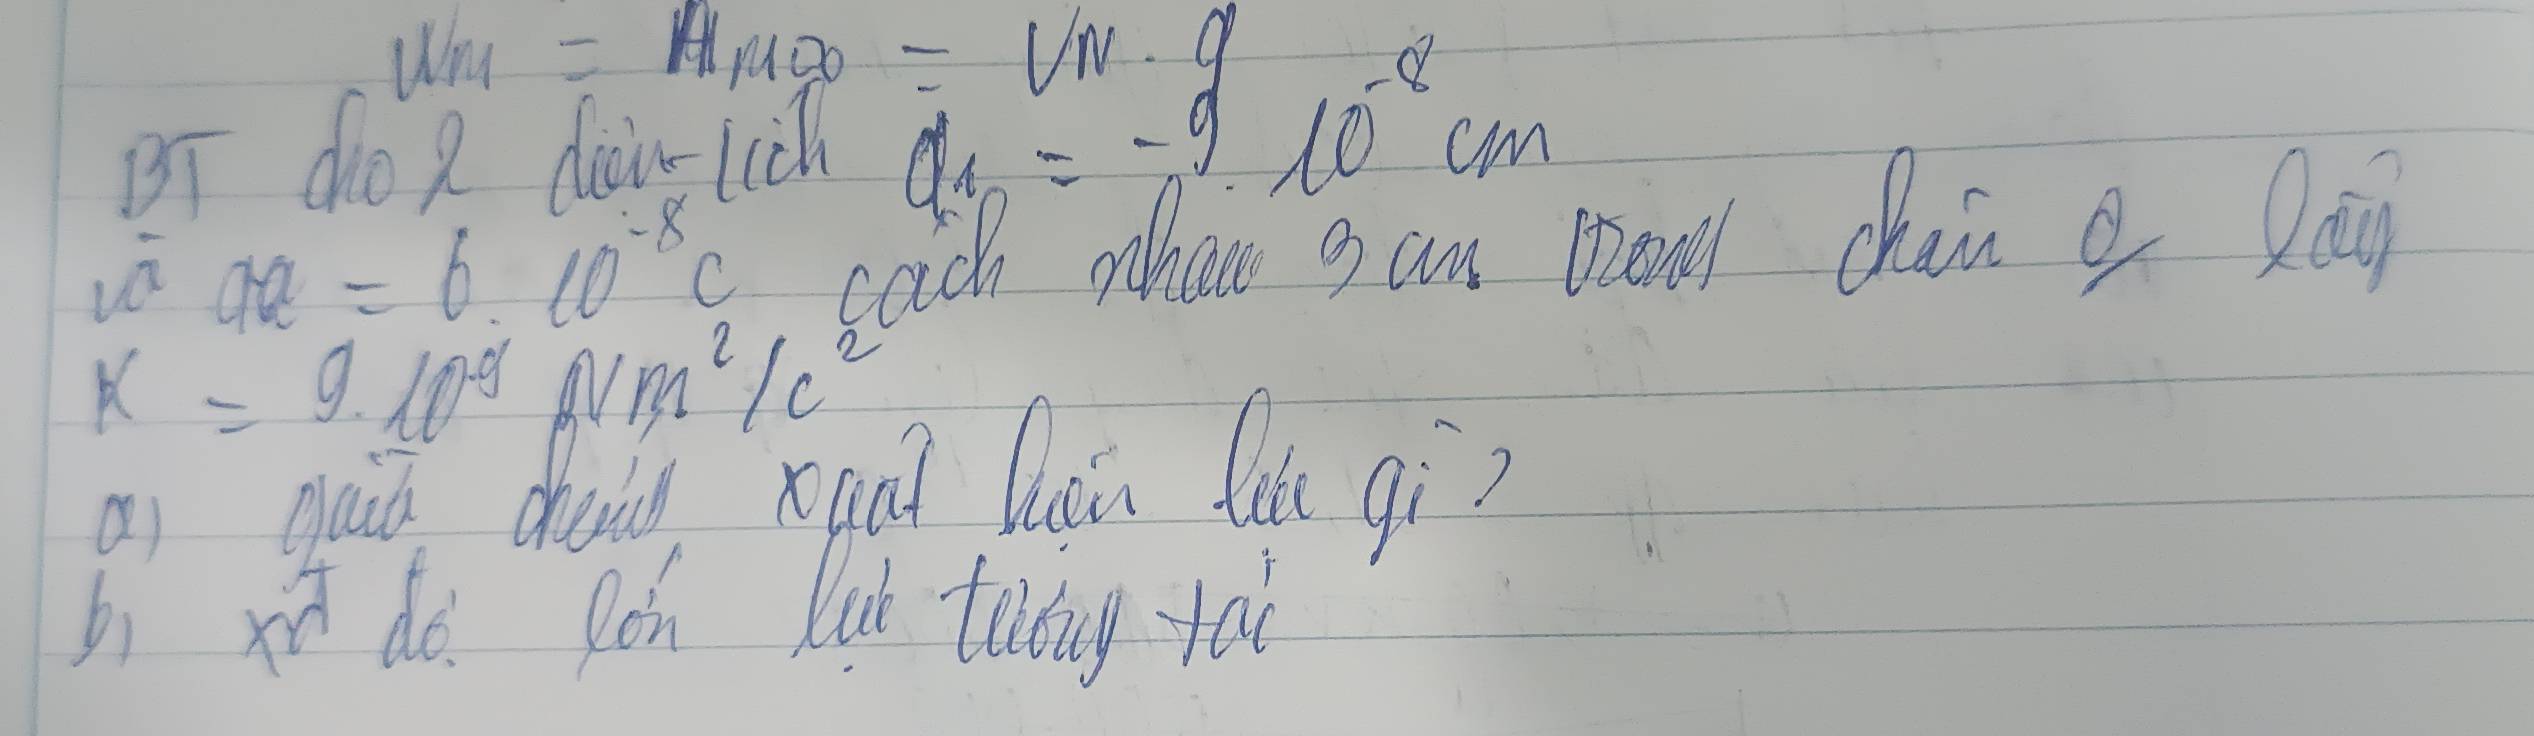 Wm = AM∞ = VM . q
BT cho 2 điện tích q1 = -9. 10^-8 cm
và qa = 6. 10^-8 C cách nhau 3 cm trong chân 0 lấy
K = 9. 10^9 Nm²/c²
a) giữa chúng xuất hiện lực gì?
b) xđ độ lớn lực tương tác